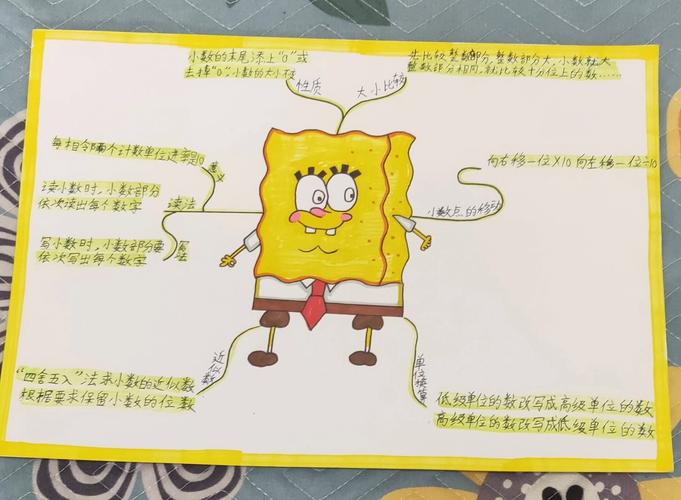 小数的末尾添上"0"或
去掉"0",小数的大小不
性质
大小比较
先比较整数部分,整数部分大,小数就大
整数部分相同,就比较十分位上的数……
每相邻两个计数单位进率是10
意义
读小数时,小数部分
依次读出每个数字
读法
写小数时,小数部分要
依次写出每个数字
写法
向右移一位×10 向左移一位÷10
小数点的移动
近似数
"四舍五入"法求小数的近似数
根据要求保留小数的位数
单位换算
低级单位的数改写成高级单位的数
高级单位的数改写成低级单位的数